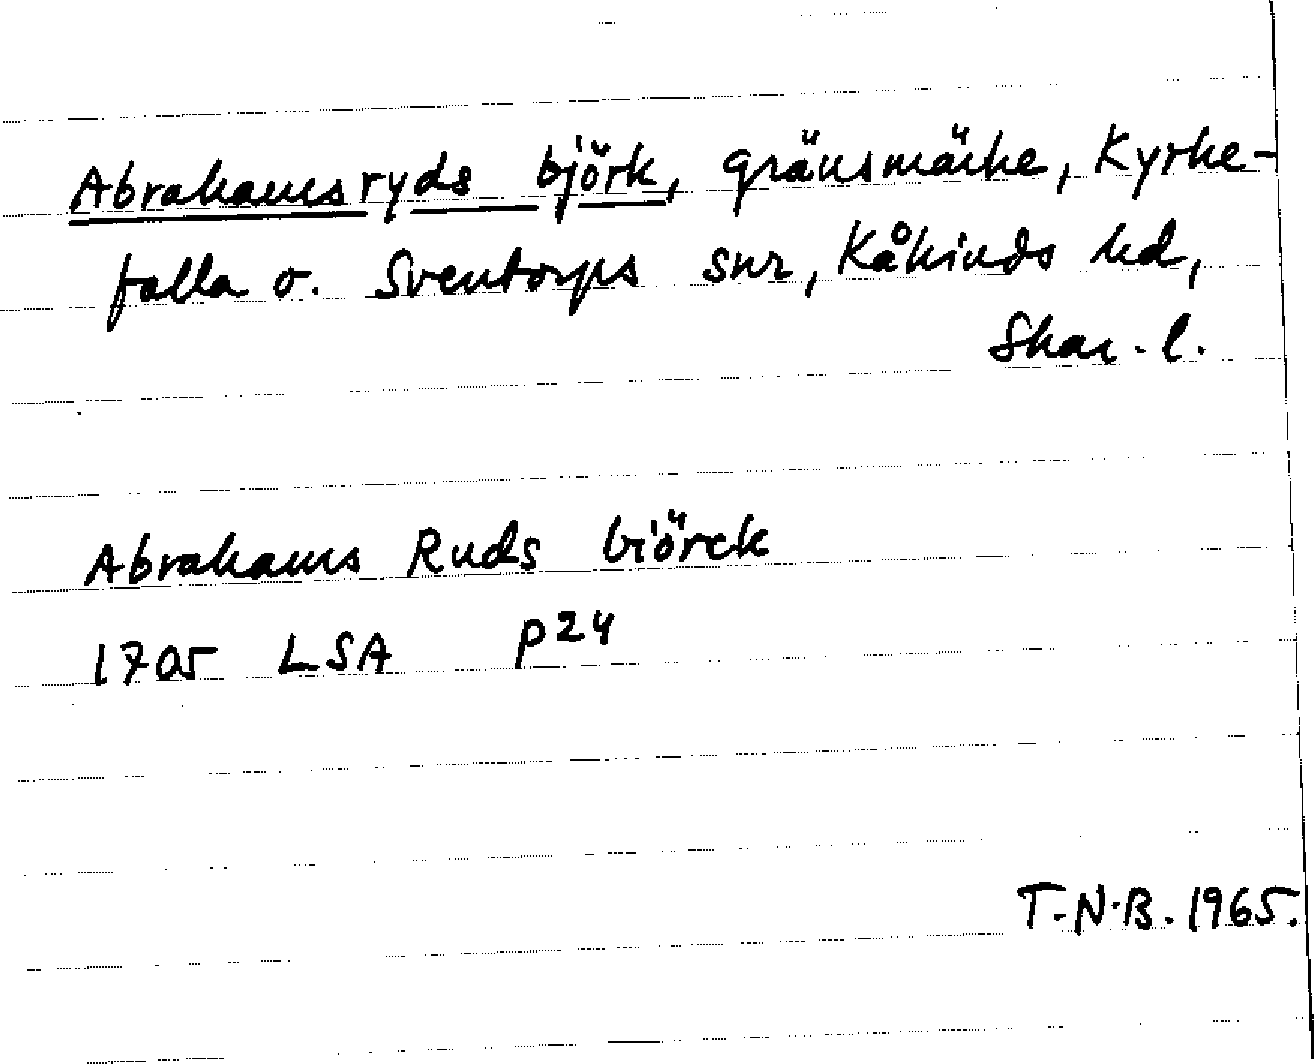 Abrahamsryds björk, gränsmärke, Kyrke-
falla o. Sventorps snr, Kåkinds hd,
Skar. l.
Abrahams Ruds biörck
1705 LSA P24
T.N.B. 1965.